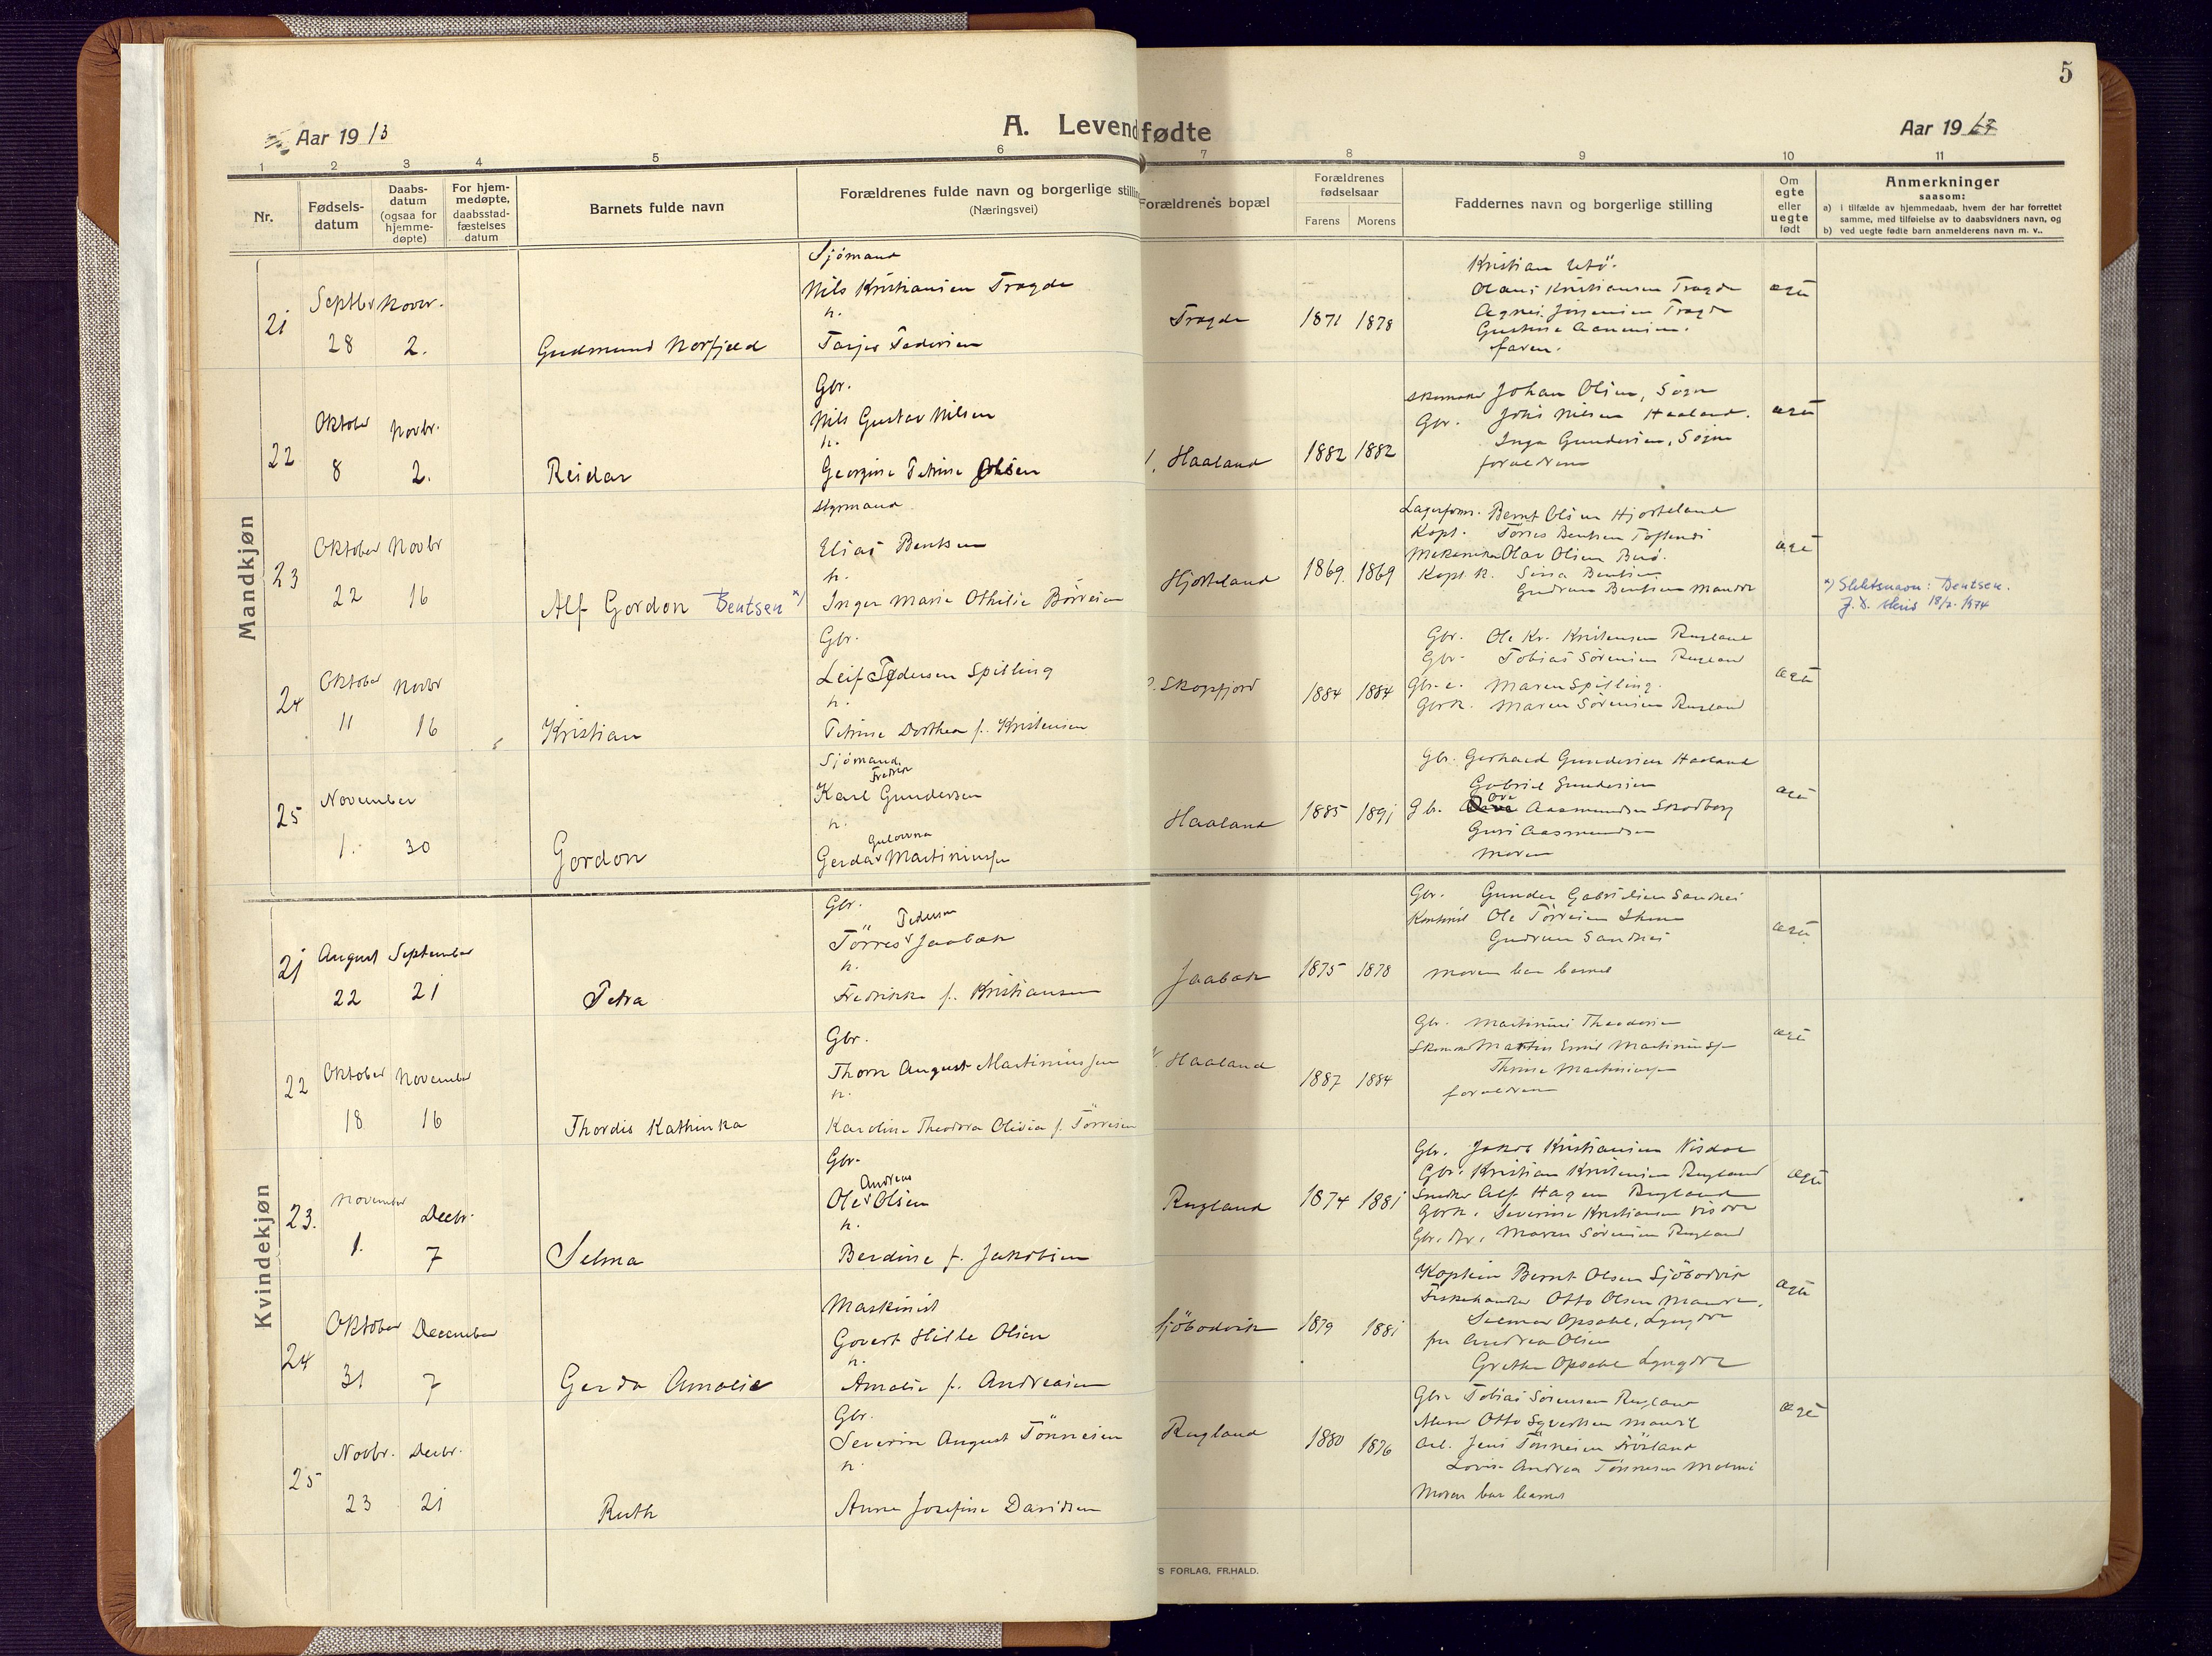 5
Aar 1913
A. Levend fødte
Aar 19
1 2 3 4 5 6 7 8 9 10 11
Nr.
Fødsels-
datum
Daabs-
datum
(ogsaa for
hjemme-
døpte)
For hjem-
medøpte,
daabsstad-
fæstelses
datum
Barnets fulde navn
Forældrenes fulde navn og borgerlige stillin
(Næringsvei)
Forældrenes bopæl
Forældrenes
fødselsaar
Farens Morens
Faddernes navn og borgerlige stilling
Om
egte
eller
uegte
født
Anmerkninger
saasom:
a) i tilfælde av hjemmedaab, hvem der har forrettet
samme, med tilføielse av to daabsvidners navn, og
b) ved uegte fødte barn anmelderens navn m. v..
Mandkjøn
21
Septbr Novbr.
28 2.
Gudmund Norfjeld
Sjømand
Nils Kristiansen Tregde
h.
Tregde
1871 1878
Kristian Utø.
Olaus Kristiansen Tregde
Agnes Jørgensen Tregde
Gustine Aanensen.
faren.
ægte
22
Oktober Novbr.
8 2.
Reidar
Gbr.
Nils Gustav Nilsen
h.
Georgine Petrine Olsen
Haaland
1882 1882
Skomaker Johan Olsen, Søgne
Gbr. Johs Nilsen Haaland.
Inga Gundersen, Søgne
forældrene
ægte
23
Oktober Novbr
22 16
Alf Gordon Bentsen *)
Styrmand
Elias Bentsen
h.
Inger Marie Othilie Børresen
Hjorteland
1869 1869
Lagerform. Bernt Olsen Hjorteland
Kapt. Tørres Bentsen
Mekaniker Olav Olsen
Kapt. h. Bentsen
Gudrun Bentsen Mandal
ægte
*) Slektsnavn: Bentsen.
J.D. skriv 18/2. 1974
24
Oktober Novbr
11 16
Kristian
Gbr.
Leif Pedersen Spilling
h.
Petrine Dorthea f. Kristensen
Skogsfjord
1884 1884
Gbr. Ole Kr. Kristensen Rugland
Gbr. Tobias Sørensen Rugland
Gbr. e. Maren Spilling.
Gbr k. Maren Sørensen Rugland
ægte
25
November
1. 30
Gordon
Sjømand
Fredrik
Karl Gundersen
h.
Gerda Martiniussen
Haaland
1885 1891
Gbr. Gerhard Gundersen Haaland
Gabriel Gundersen
Gb. Ove Aasmundsen Skodborg
Guri Aasmundsen
moren
ægte
Kvindekjøn
21
August September
22 21
Petra
Gbr.
Pedersen
Tørres Jaabæk
h.
Fredrikke f. Kristiansen
Jaabæk
1875 1878
Gbr. Gunder Gabrielsen Sandnes
Ole Tørresen
Gudrun Sandnes
moren bar barnet
ægte
22
Oktober November
18 16
Thordis Kathinka
Gbr.
Thorn August Martiniussen
h.
Karoline Theodora Olivia f. Tørresen
Haaland
1887 1884
Gbr. Martinius Theodorsen
Skomaker Martin Emil Martiniussen
Thrine Martiniussen
forældrene
ægte
23.
November Decbr.
1. 7
Selma
Gbr.
Andreas
Ole Olsen
h.
Berdine f. Jakobsen
Rugland
1874 1881
Gbr. Jakob Kristiansen Visdal
Gbr. Kristian Kristensen Rugland
Snedker Alf Hagen Rugland
Gbrk. Severine Kristiansen Visdal
Gbr. dtr. Maren Sørensen Rugland
ægte
24
Oktober December
31 7
Gerda Amalie
Maskinist
Govert Hille Olsen
h.
Amalie f. Andreasen
Sjöbodvik
1879 1881
Kaptein Bernt Olsen Sjöbodvik
Fiskehandler Otto Olsen Mandal.
Opsahl, Lyngdal
fru Andrea Olsen
Grethe Opsahl Lyngdal
ægte
25
Novbr. Decbr.
23 21
Ruth
Gbr.
Severin August Tönnesen
h.
Anne Josefine Davidsen
Rugland
1880 1876
Gbr. Tobias Sørensen Rugland
Otto Syvertsen Mandal
Arb. Jens Tönnesen Frösland
Lovise Andrea Tønnesen
Moren bar barnet
ægte
S FORLAG, FR.HALD.